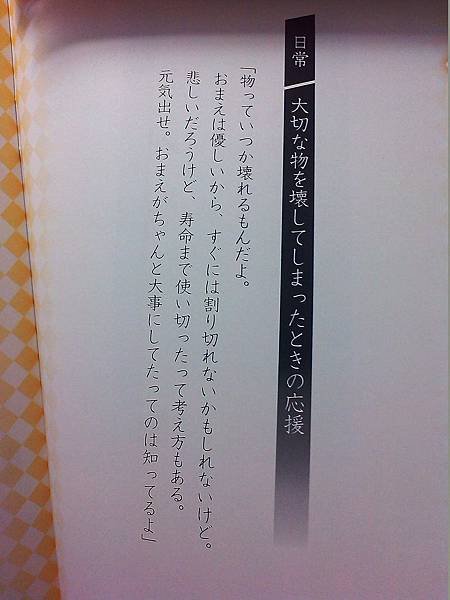 日常
大切な物を壊してしまったときの応援
「物っていつか壊れるもんだよ。
おまえは優しいから、すぐには割り切れないかもしれないけど。
悲しいだろうけど、寿命まで使い切ったって考え方もある。
元気出せ。おまえがちゃんと大事にしてたってのは知ってるよ」